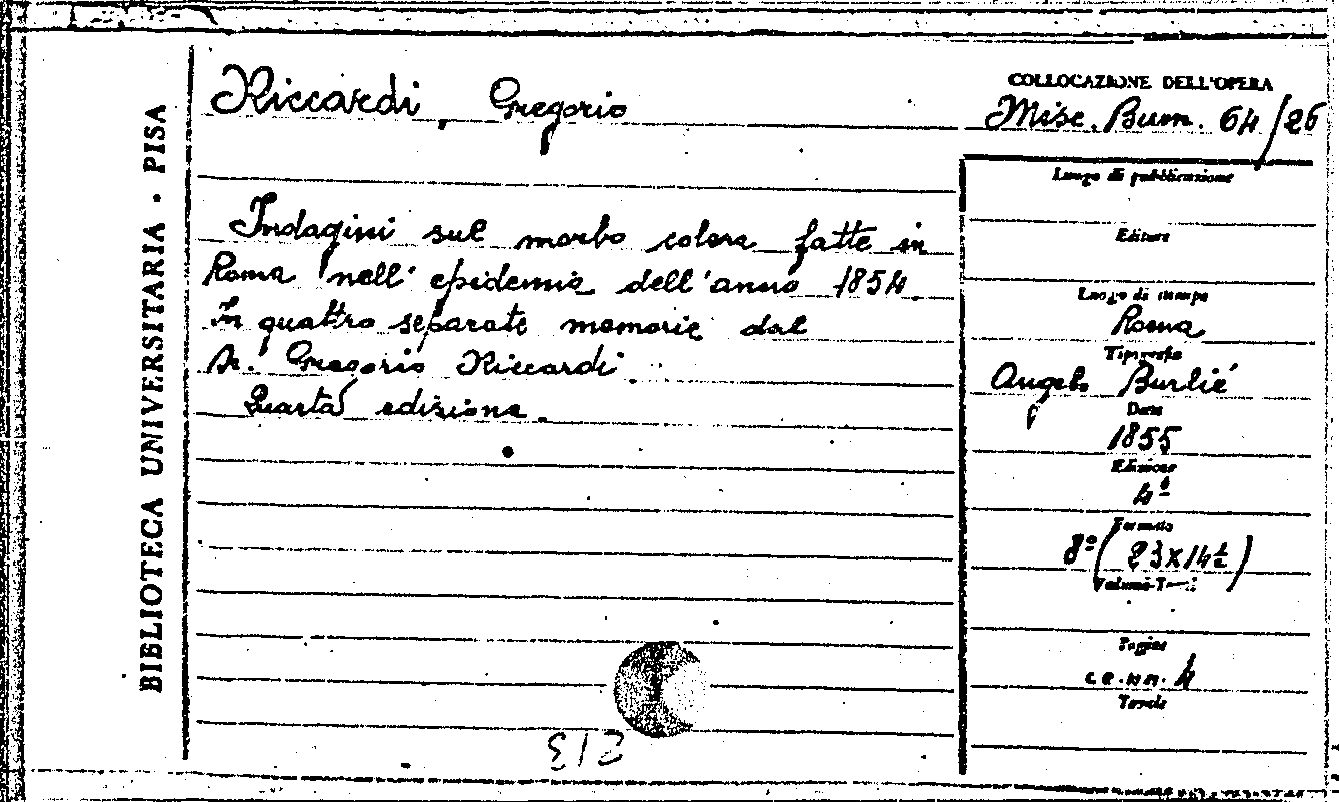 BIBLIOTECA UNIVERSITARIA · PISA
Riccardi, Gregorio
Indagini sul morbo colera fatte in
Roma nell' epidemia dell'anno 1854.
In quattro separate memorie dal
Gregorio Riccardi.
Quarta edizione.
COLLOCAZIONE DELL'OPERA
Misc. Buon. 64/26
Luogo di pubblicazione
Editore
Luogo di stampa
Roma
Tipografia
Angelo Burlié
Data
1855
Edizione
4ª
Formato
8º (23x14½)
Volume-T
Pagine
cc.nn. 4
Tavole